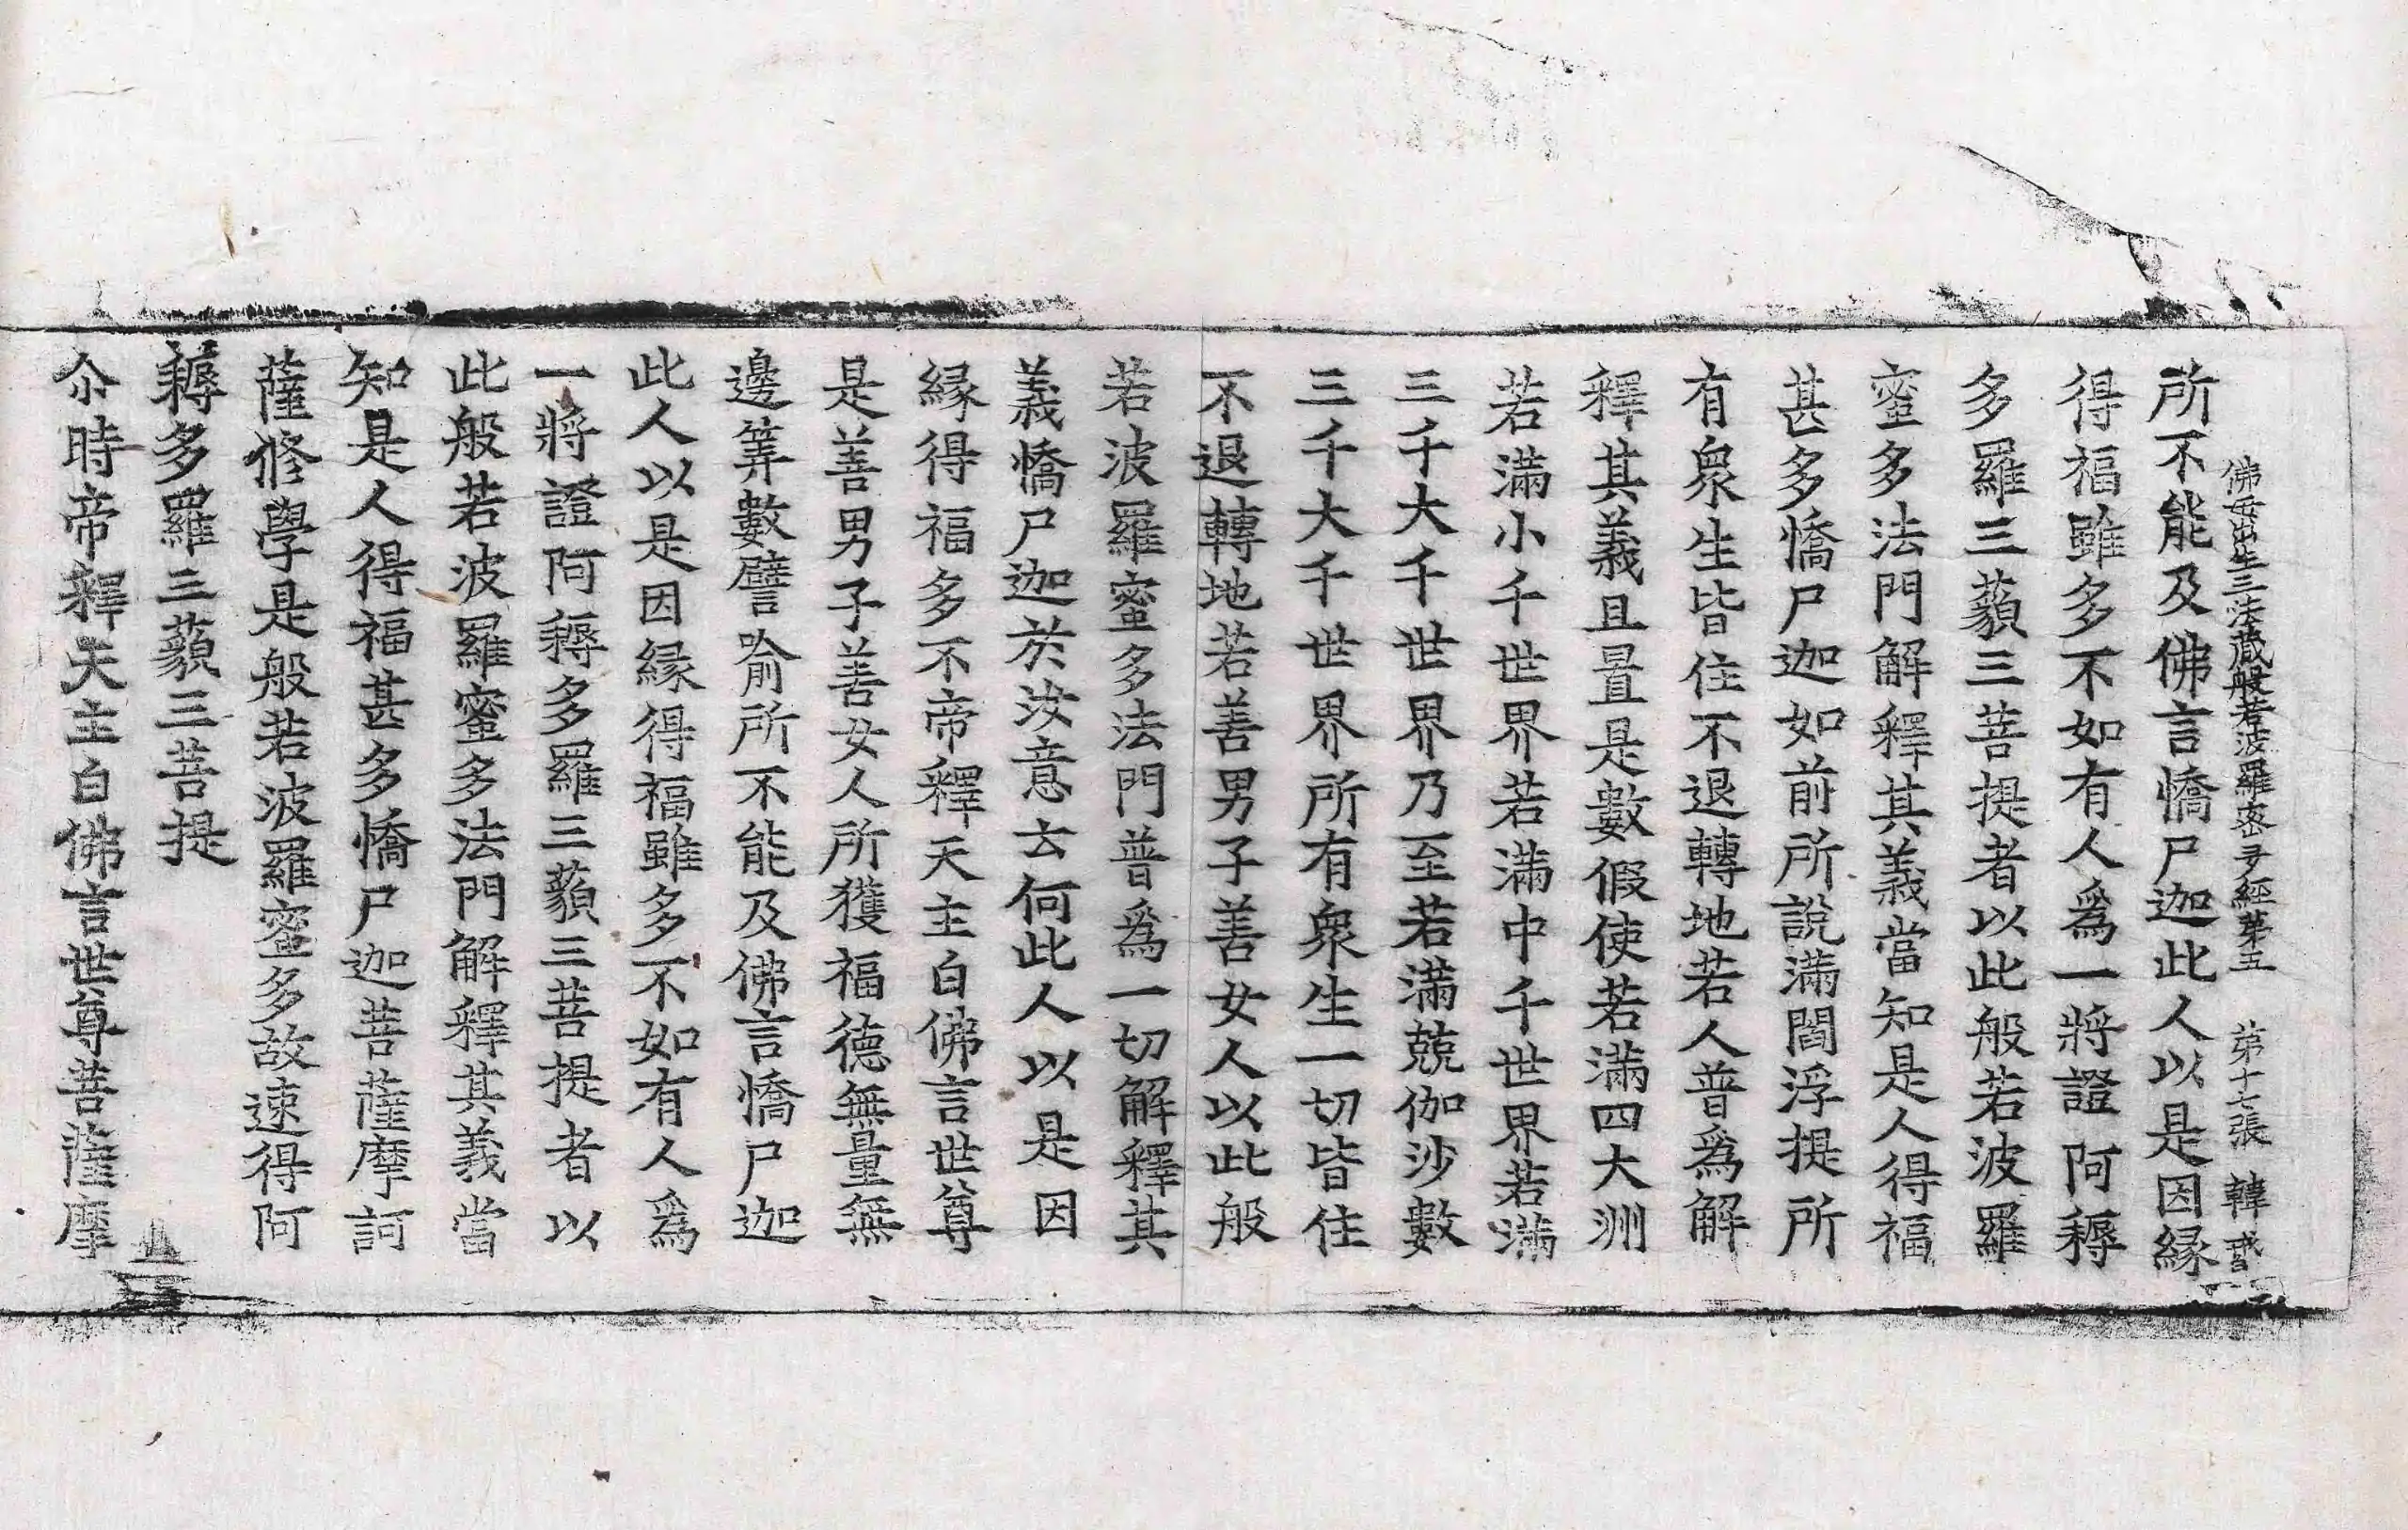 佛母出生三法藏般若波羅蜜多經第五 第十七張 韓誓
所不能及佛言憍尸迦此人以是因縁
得福雖多不如有人爲一將證阿耨
多羅三藐三菩提者以此般若波羅
蜜多法門解釋其義當知是人得福
甚多憍尸迦如前所說滿閻浮提所
有衆生皆住不退轉地若人普爲解
釋其義且置是數假使若滿四大洲
若滿小千世界若滿中千世界若滿
三千大千世界乃至若滿兢伽沙數
三千大千世界所有衆生一切皆住
不退轉地若善男子善女人以此般
若波羅蜜多法門普爲一切解釋其
義憍尸迦於汝意云何此人以是因
縁得福多不帝釋天主白佛言世尊
是善男子善女人所獲福德無量無
邊筭數譬喻所不能及佛言憍尸迦
此人以是因縁得福雖多不如有人爲
一將證阿耨多羅三藐三菩提者以
此般若波羅蜜多法門解釋其義當
知是人得福甚多憍尸迦菩薩摩訶
薩修學是般若波羅蜜多故速得阿
耨多羅三藐三菩提
尒時帝釋天主白佛言世尊菩薩摩